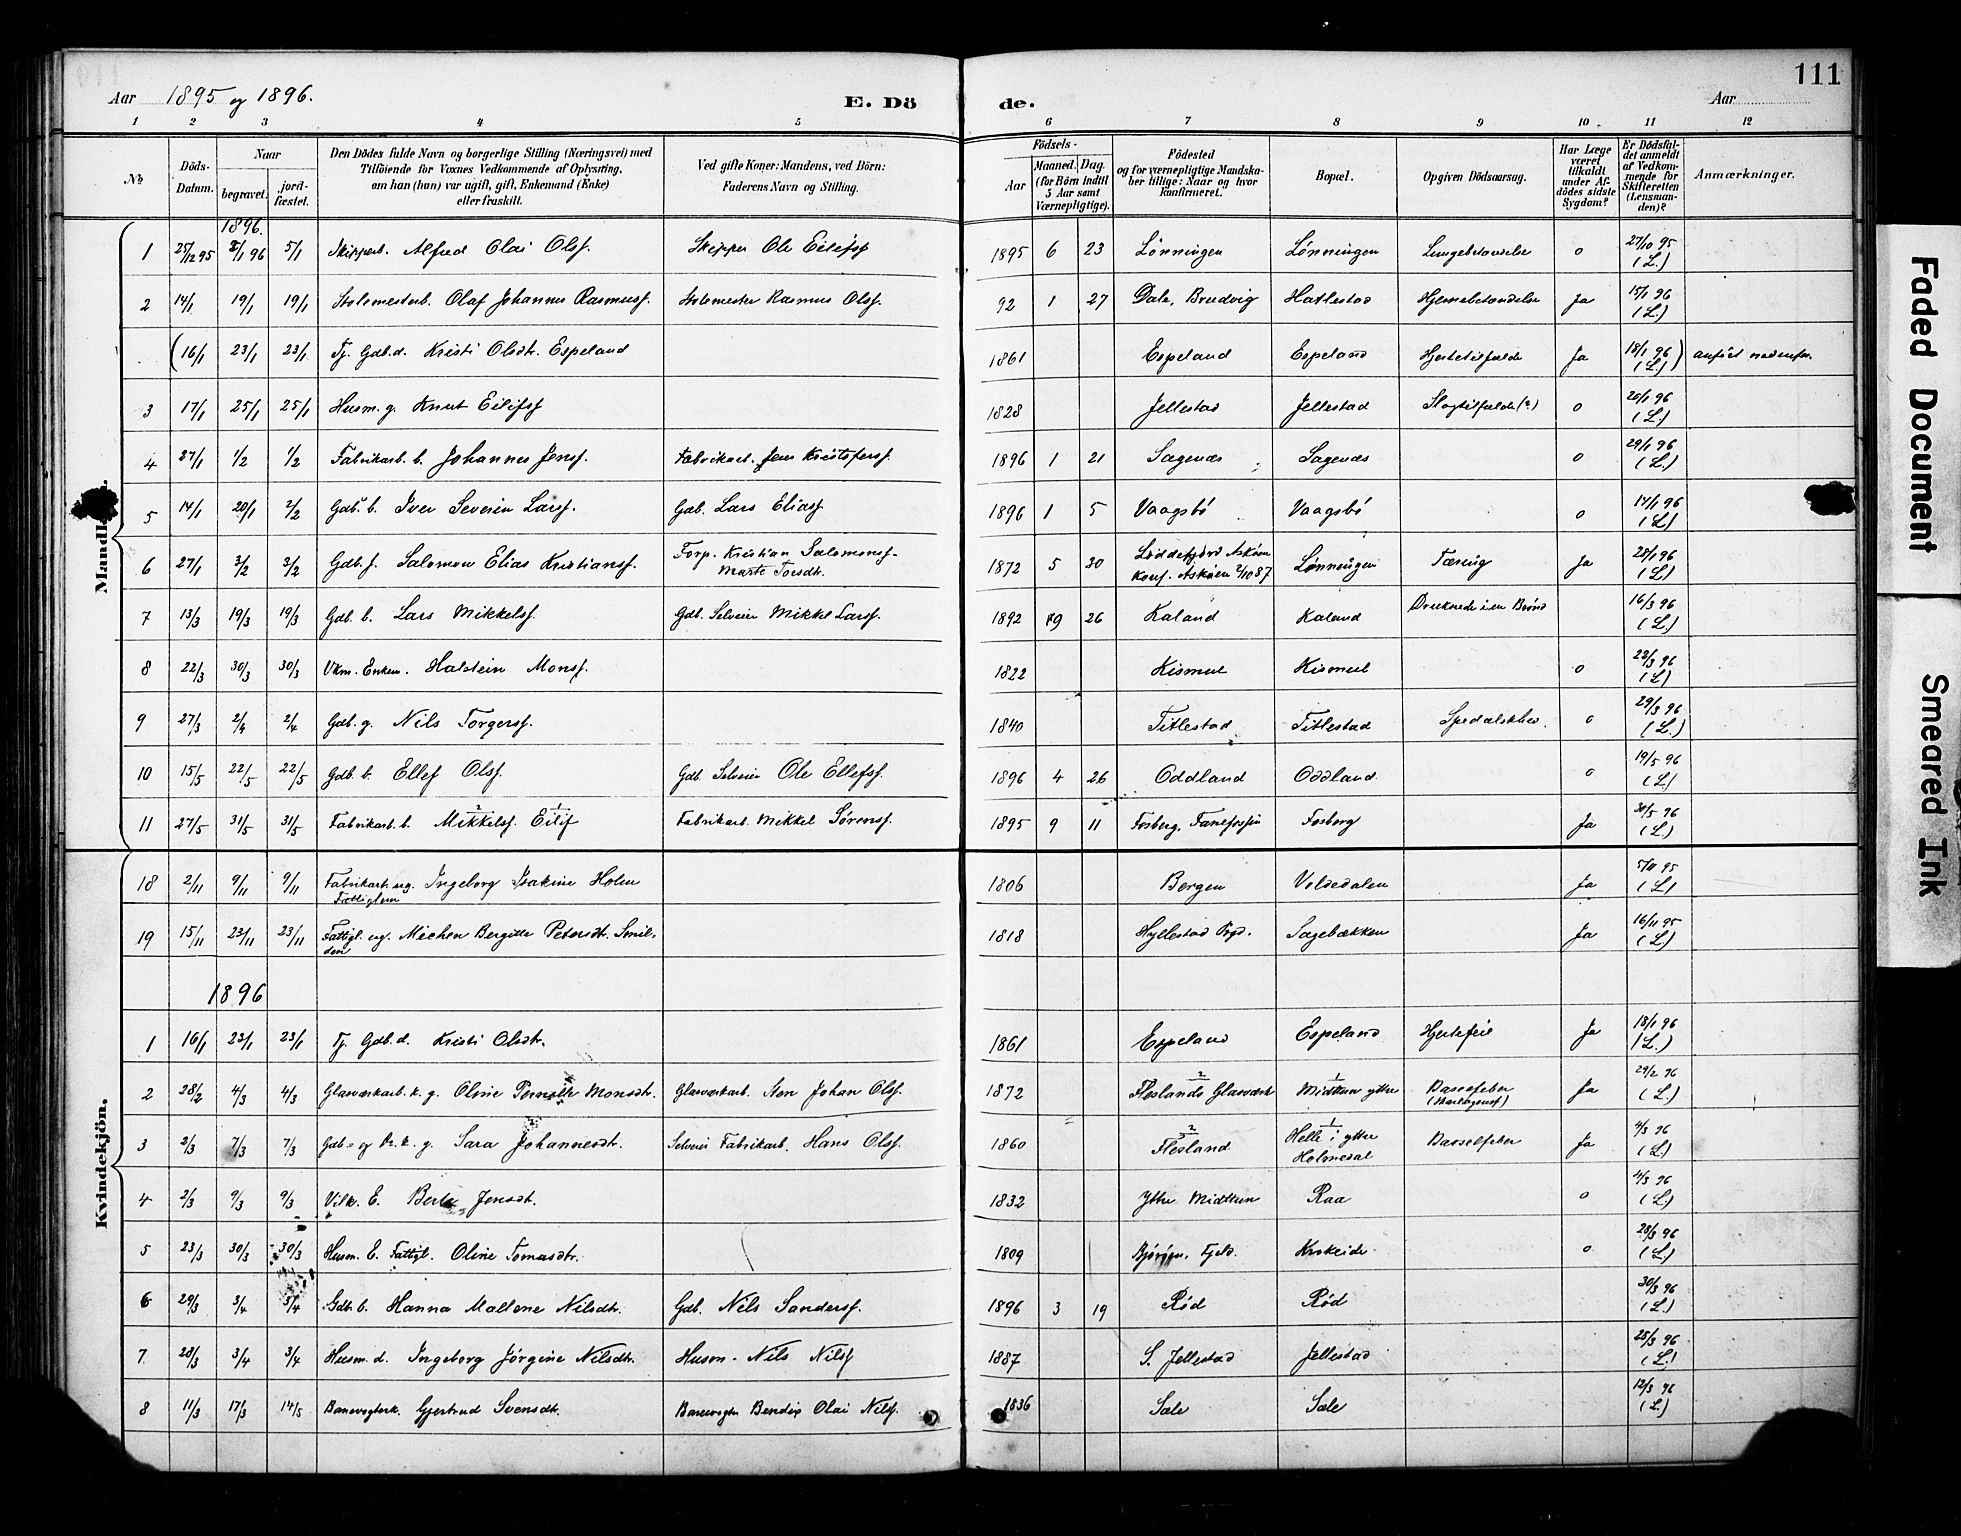 111
Aar 1895 og 1896. E. Dö de. Aar
1 2 3 4 5 6 7 8 9 10 11 12
№
Döds-Datum.
Naar
begravet.
jordfæstet.
Den Dödes fulde Navn og borgerlige Stilling (Næringsvei) med
Tilföiende for Voxnes Vedkommende af Oplysning,
om han (hun) var ugift, gift, Enkemand (Enke)
eller fraskilt.
Ved gifte Koner: Mandens, ved Börn:
Faderens Navn og Stilling.
Födsels-
Aar
Maaned. Dag.
(for Börn indtil
5 Aar samt
Værnepligtige).
Födested
og for værnepligtige Mandskaber tillige: Naar og hvor
konfirmeret.
Bopæl.
Opgiven Dödsaarsag.
Har Læge
været
tilkaldt
under Afdödes sidste
Sygdom?
Er Dödsfaldet anmeldt
af Vedkommende for
Skifteretten
(Lensmanden)?
Anmærkninger.
Mandkjön.
1896.
1 25/12 95 2/1 96 5/1 Skipperb. Alfred Olai Olsf. Skipper Ole Eilifsf 1895 6 23 Lønningen Lønningen Lungebetændelse o 27/10 95 (L.)
2 14/1 19/1 19/1 Stolemesterb. Olaf Johannes Rasmusf. Stolemester Rasmus Olsf. 92 1 27 Dale, Bruvig Hatlestad Hjernebetændelse Ja 15/1 96 (L)
(16/1 23/1 23/1 Tj. Gdb.d. Kristi Olsdtr. Espeland 1861 Espeland Espeland Hjertetilfælde Ja 18/1 96 (L)) anført nedenfor.
3 17/1 25/1 25/1 Husm. g. Knut Eilifsf 1828 Jellestad Jellestad Slagtilfælde (?) o 20/1 96 (L)
4 27/1 1/2 1/2 Fabrikarb. b. Johannes Jensf. Fabrikarb. Jens Kristofersf. 1896 1 21 Sagenæs Sagenæs o 29/1 96 (L.)
5 14/1 20/1 2/2 Gdb. b. Iver Severin Larsf. Gdb. Lars Eliasf 1896 1 5 Vaagsbø Vaagsbø o 17/1 96 (L)
6 27/1 3/2 3/2 Gdb. f. Salomon Elias Kristiansf. Forp. Kristian Salomonsf. Marte Torsdtr. 1872 5 30 Laddefjord Askøen Konf. Askøen 2/10 87 Lønningen Tæring Ja 28/1 96 (L)
7 13/3 19/3 19/3 Gdb. b. Lars Mikkelsf. Gdb. Selveier Mikkel Larsf. 1892 9 26 Kaland Kaland Druknede i en Brønd 16/3 96 (L.)
8 22/3 30/3 30/3 Vkm. Enkem. Halstein Monsf. 1822 Kismul Kismul o 22/3 96 (L)
9 27/3 2/4 2/4 Gdb. g. Nils Torgersf. 1840 Titlestad Titlestad Spedalskhed. o 29/3 96 (L.)
10 15/5 22/5 22/5 Gdb. b. Ellef Olsf. Gdb Selveier Ole Ellefsf. 1896 4 26 Oddland Oddland o 19/5 96 (L)
11 27/5 31/5 31/5 Fabrikarb. b. Mikkelsf. Eilif Fabrikarb. Mikkel Sørensf. 1895 9 11 Fosberg, Fosberg Ja 30/5 96 (L.)
Kvindekjön.
18 2/11 9/11 9/11 Fabrikarb. ug. Ingeborg Isakine Holm Fattiglem 1806 Bergen Voldedalen Ja 5/11 95 (L)
19 15/11 23/11 23/11 Fattigl. ug. Michen Bergitte Petersdtr. Smilden 1818 Hyllestad Prgd. Sagebækken Ja 16/11 95 (L)
1896
1 16/1 23/1 23/1 Tj. Gdb.d. Kristi Olsdtr. 1861 Espeland Espeland Hjertefeil Ja 18/1 96 (L.)
2 28/2 4/3 4/3 Glasværkarb. k. g. Oline Pernille Monsdtr. Glasværkarb. Søn Johan Olsf. 1872 Fleslands Glasværk Midttun ytre Barselfeber Ja 29/2 96 (L)
3 2/3 7/3 7/3 Gdb- og k. g. Sara Johannesdtr. Selveier Fabrikarb. Hans Olsf. 1860 Flesland Helle i ytre Holmedal Barselfeber Ja 4/3 96 (L)
4 2/3 9/3 9/3 Vilk. E. Berta Jensdtr. 1832 Ytre Midttun Raa o 4/3 96 (L)
5 23/3 30/3 30/3 Husm. E. Fattigl. Oline Tomasdtr. 1809 Bjørøen, Fjeld. Krokeide. o 28/3 96 (L)
6 29/3 3/4 3/4 Gdb. b. Hanna Mallene Nilsdtr. Gdb. Nils Sandersf. 1896 3 19 Rød Rød 30/3 96 (L.)
7 28/3 3/4 3/4 Husm. d. Ingeborg Jørgine Nilsdtr. Husm. Nils Nilsf 1887 S. Jellestad Jellestad 28/3 96 (L.)
8 11/3 17/3 14/5 Banevogterk. Gjertrud Svensdtr. Banevogter Bendix Olai Nilsf. 1836 Sæle Sæle 12/3 96 (L.)
Faded Document
Smeared Ink